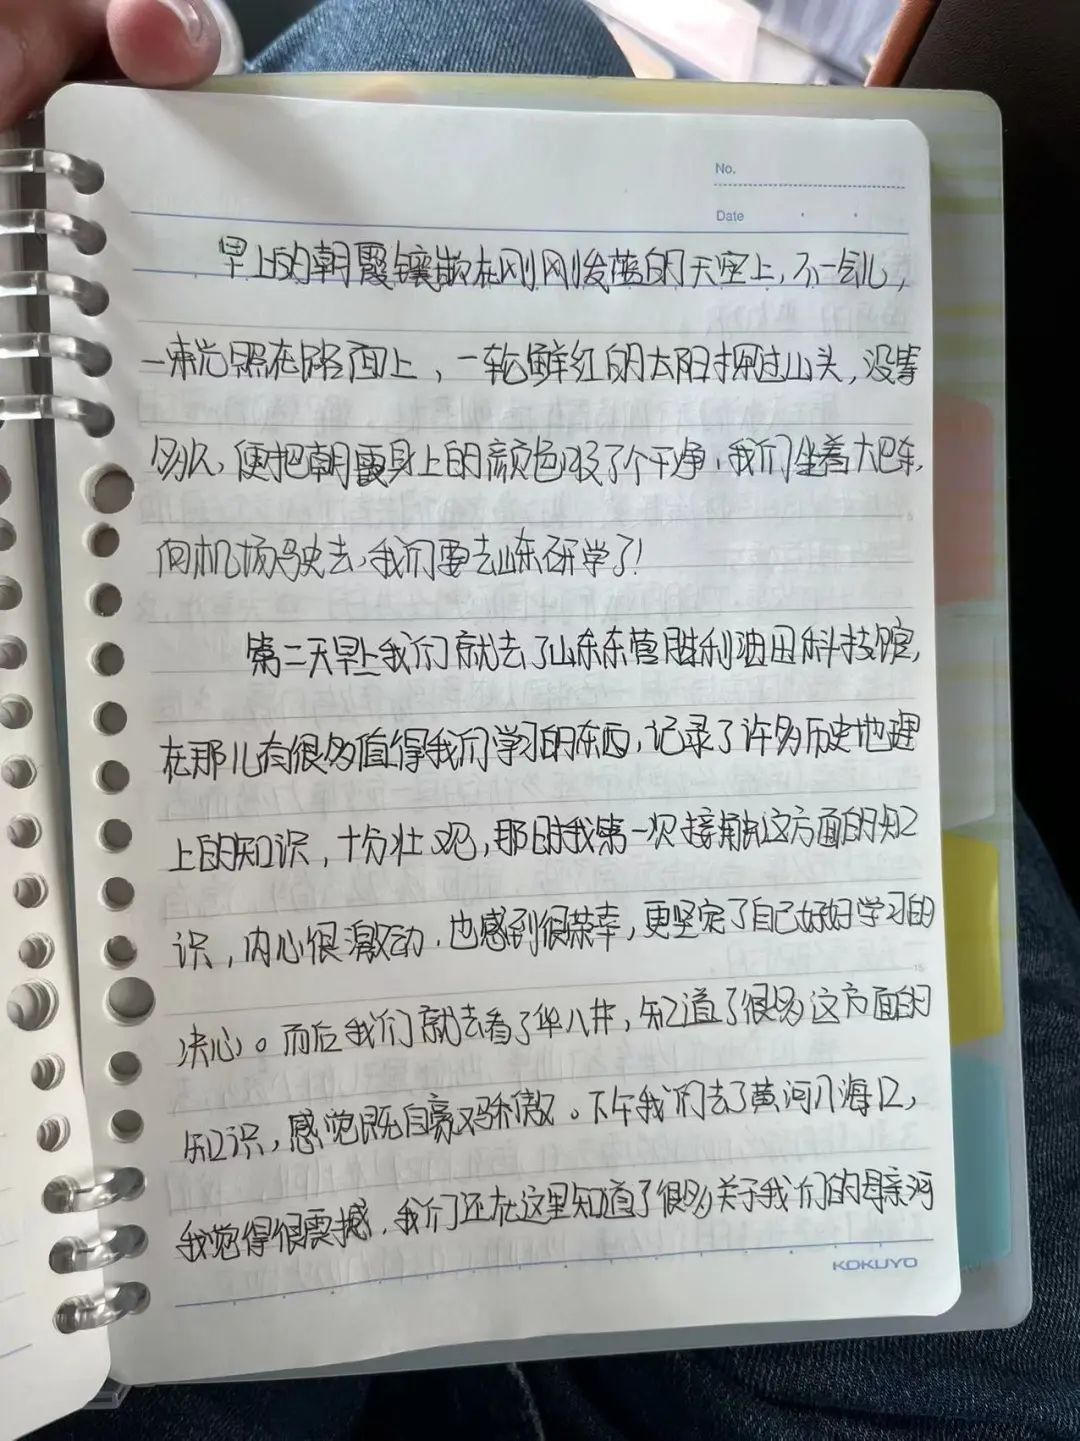 No.
Date
早上的朝霞镶嵌在刚刚发蓝的天空上，不一会儿，
一束光照在路面上，一轮鲜红的太阳探过山头，没等
多久，便把朝霞身上的颜色吸了个干净，我们坐着大巴车，
向机场驶去，我们要去山东研学了！
第二天早上我们就去了山东东营胜利油田科技馆，
在那儿有很多值得我们学习的东西，记录了许多历史地理
上的知识，十分壮观，那时我第一次接触这方面的知
识，内心很激动，也感到很荣幸，更坚定了自己好好学习的
决心。而后我们就去看了华八井，知道了很多这方面的
知识，感觉既自豪又骄傲。下午我们去了黄河入海口，
我觉得很震撼，我们还在这里知道了很多关于我们的母亲河
KOKUYO